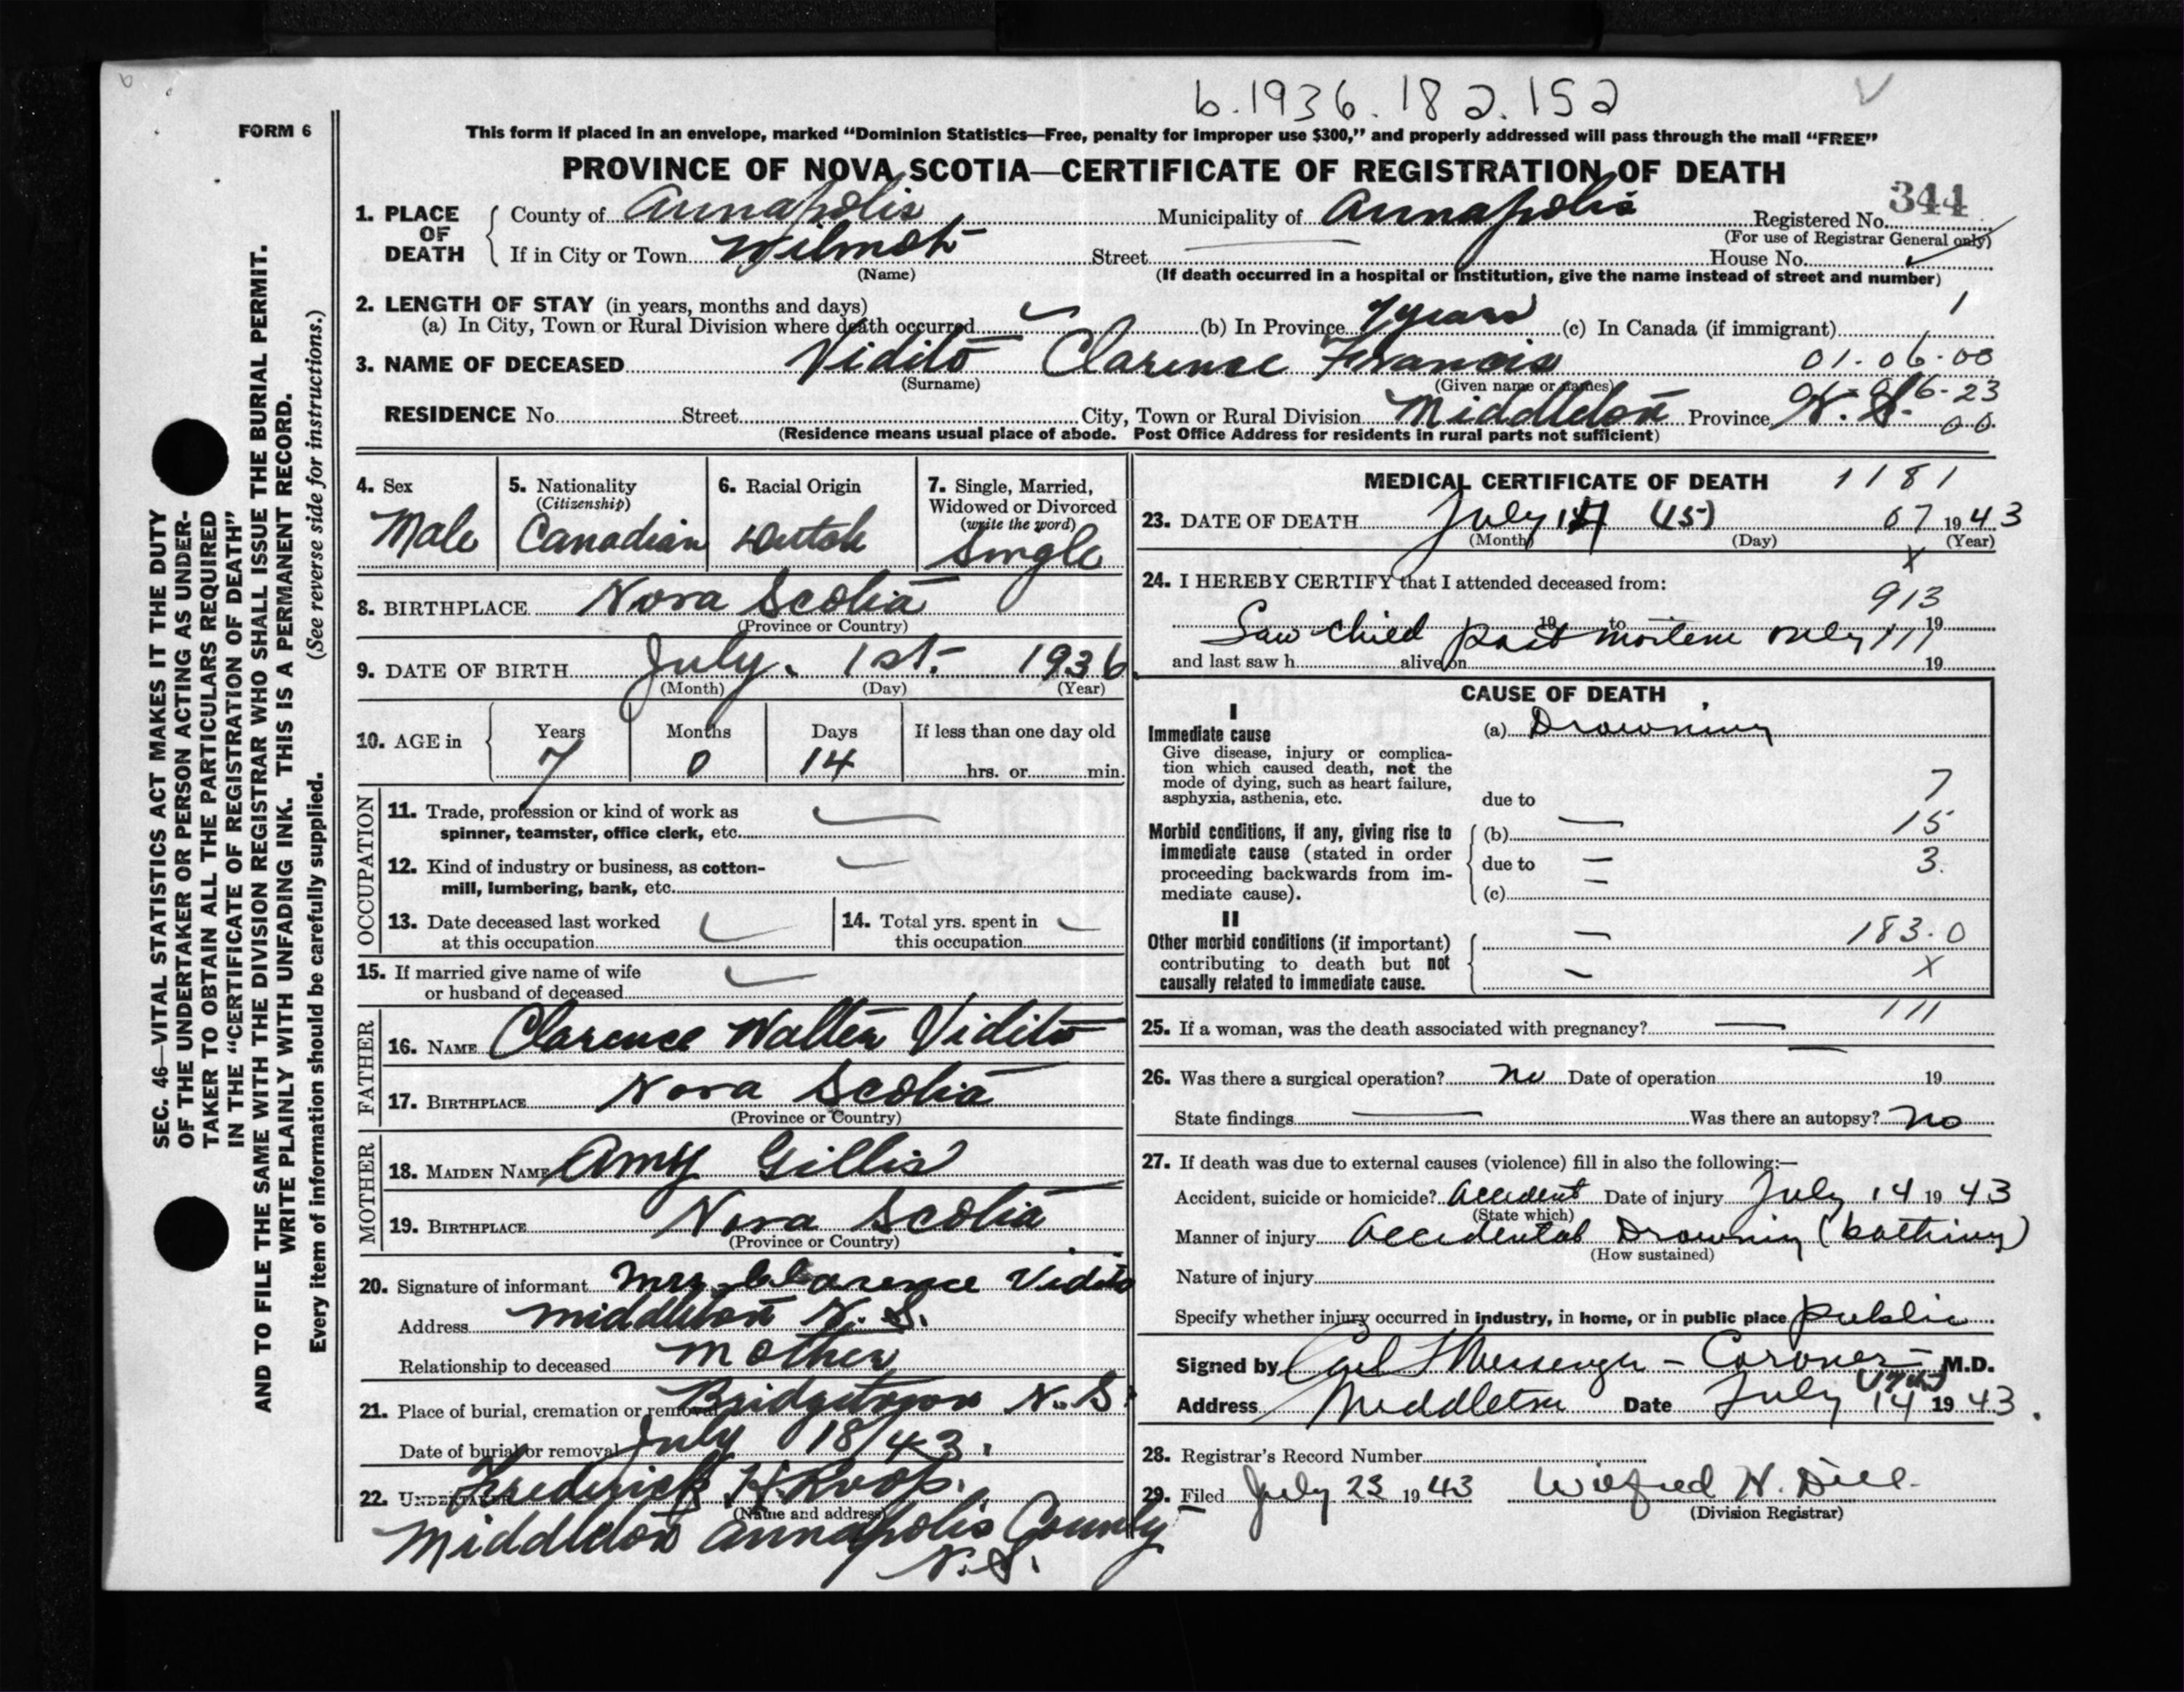 b.1936.182.152
FORM 6
This form if placed in an envelope, marked “Dominion Statistics—Free, penalty for improper use $300,” and properly addressed will pass through the mail “FREE”
PROVINCE OF NOVA SCOTIA—CERTIFICATE OF REGISTRATION OF DEATH
344
1. PLACE OF DEATH
County of Annapolis Municipality of Annapolis Registered No.
(For use of Registrar General only)
If in City or Town Wilmot Street House No.
(Name) (If death occurred in a hospital or institution, give the name instead of street and number)
2. LENGTH OF STAY (in years, months and days) 1
(a) In City, Town or Rural Division where death occurred (b) In Province 7 years (c) In Canada (if immigrant)
3. NAME OF DECEASED Vidito Clarence Francis 01-06-00
(Surname) (Given name or names)
RESIDENCE No. Street City, Town or Rural Division Middleton Province N. S. 00
(Residence means usual place of abode. Post Office Address for residents in rural parts not sufficient)
4. Sex Male
5. Nationality (Citizenship) Canadian
6. Racial Origin Dutch
7. Single, Married, Widowed or Divorced (write the word) Single
8. BIRTHPLACE Nova Scotia
(Province or Country)
9. DATE OF BIRTH July 1st 1936
(Month) (Day) (Year)
10. AGE in Years Months Days If less than one day old
7 0 14 hrs. or min.
OCCUPATION
11. Trade, profession or kind of work as
spinner, teamster, office clerk, etc.
12. Kind of industry or business, as cotton-
mill, lumbering, bank, etc.
13. Date deceased last worked
at this occupation
14. Total yrs. spent in
this occupation
15. If married give name of wife
or husband of deceased
FATHER
16. NAME Clarence Walter Vidito
17. BIRTHPLACE Nova Scotia
(Province or Country)
MOTHER
18. MAIDEN NAME Amy Gillis
19. BIRTHPLACE Nova Scotia
(Province or Country)
20. Signature of informant Mrs. Clarence Vidito
Address Middleton N. S.
Relationship to deceased Mother
21. Place of burial, cremation or removal Bridgetown N. S.
Date of burial or removal July 18/43.
22. UNDERTAKER Frederick H. Roop.
(Name and address)
Middleton Annapolis County
N.S.
MEDICAL CERTIFICATE OF DEATH 1181
23. DATE OF DEATH July 14 (15) 07 1943
(Month) (Day) (Year)
X
24. I HEREBY CERTIFY that I attended deceased from:
913
19 to 19
Saw child post mortem only 111
and last saw h alive on 19
CAUSE OF DEATH
I
Immediate cause
Give disease, injury or complica-
tion which caused death, not the
mode of dying, such as heart failure,
asphyxia, asthenia, etc.
(a) Drowning
due to 7
Morbid conditions, if any, giving rise to
immediate cause (stated in order
proceeding backwards from im-
mediate cause).
(b) — 15
due to — 3.
(c) —
II
Other morbid conditions (if important)
contributing to death but not
causally related to immediate cause.
— 183.0
— X
111
25. If a woman, was the death associated with pregnancy? —
26. Was there a surgical operation? no Date of operation 19
State findings — Was there an autopsy? no
27. If death was due to external causes (violence) fill in also the following:—
Accident, suicide or homicide? Accident Date of injury July 14 1943
(State which)
Manner of injury Accidental Drowning (bathing)
(How sustained)
Nature of injury
Specify whether injury occurred in industry, in home, or in public place public
Signed by Carl Messenger – Coroner M.D.
Address Middleton Date July 14 1943.
28. Registrar's Record Number
29. Filed July 23 1943 Wilfred N. Dill
(Division Registrar)
SEC. 46—VITAL STATISTICS ACT MAKES IT THE DUTY
OF THE UNDERTAKER OR PERSON ACTING AS UNDER-
TAKER TO OBTAIN ALL THE PARTICULARS REQUIRED
IN THE “CERTIFICATE OF REGISTRATION OF DEATH”
AND TO FILE THE SAME WITH THE DIVISION REGISTRAR WHO SHALL ISSUE THE BURIAL PERMIT.
WRITE PLAINLY WITH UNFADING INK. THIS IS A PERMANENT RECORD.
Every item of information should be carefully supplied. (See reverse side for instructions.)